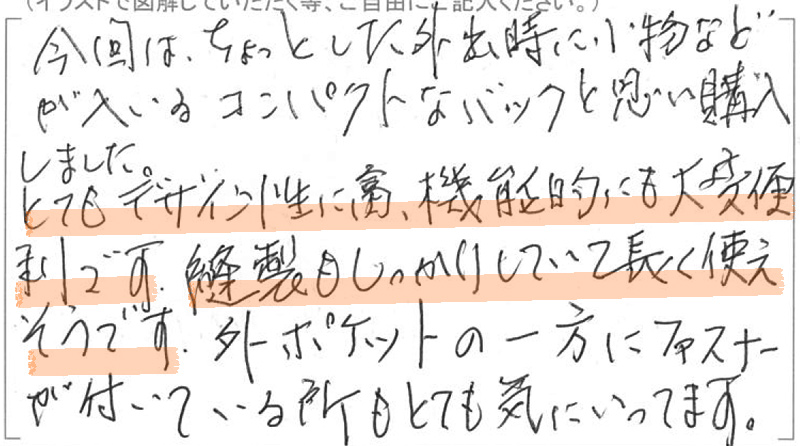 (イラストで図解していただく等、ご自由にご記入ください。)
今回は、ちょっとした外出時に小物など
が入いるコンパクトなバックと思い購入
しました。
とてもデザイン性に富、機能的にも大変便
利です。縫製もしっかりしていて長く使え
そうです。外ポケットの一方にファスナー
が付いている所もとても気にいってます。